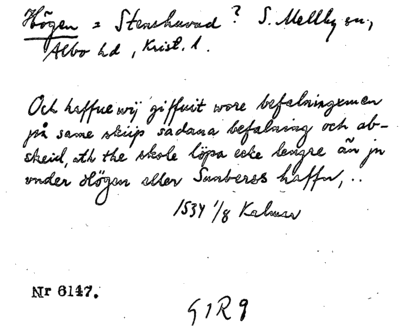 Högen = Stenshuvud? S. Mellby sn,
Albo hd, Krist. l.
Och haffue wij giffuit wore befalningxmen
på same skiip sadana befalning och ab-
skeid, ath the skole löpa icke lengre än jn
vnder Högen eller Sunberss haffn, ..
1534 1/8 Kalmar
Nr 6147.
G I R 9